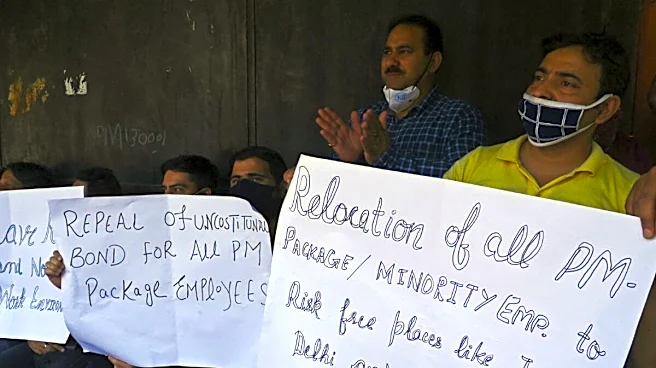 and No
REPEAL OF UNCOSTITUTIONAL
BOND FOR ALL PM
Package EMPLOYEES
Relocation of all PM-
PACKAGE/MINORITY EMP. to
Risk free places like
Delhi